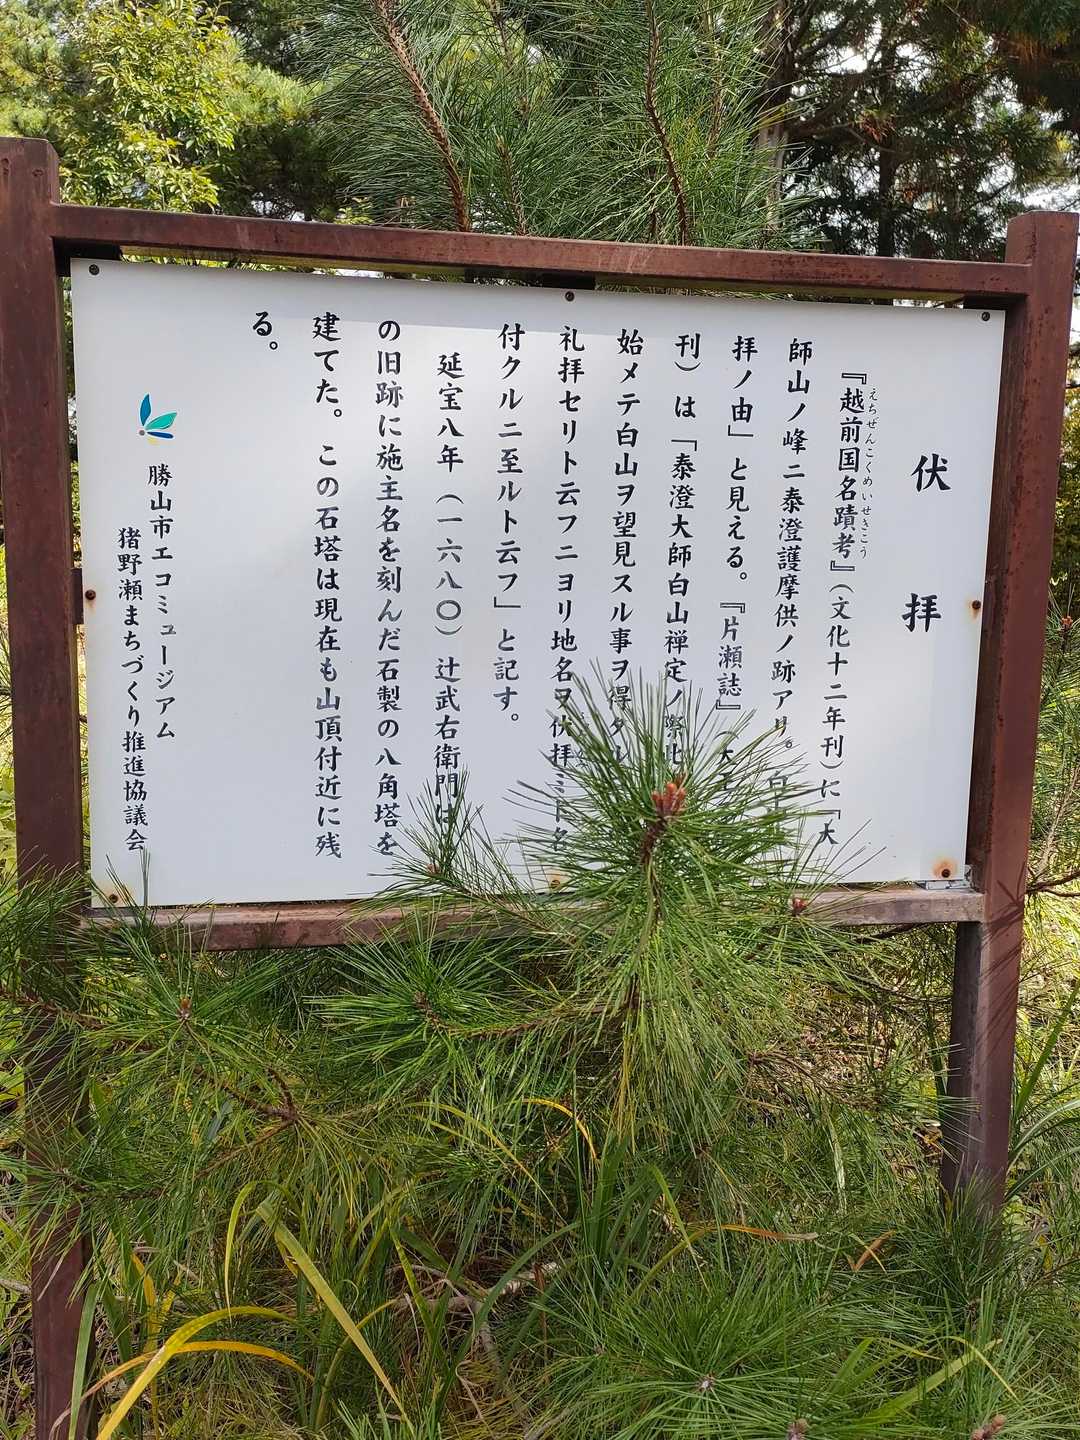 伏拝
『越前国名蹟考』（文化十二年刊）に「大
えちぜんこくめいせきこう
師山ノ峰ニ泰澄護摩供ノ跡アリ。白山
拝ノ由」と見える。『片瀬誌』（大正
刊）は「泰澄大師白山禅定ノ際此
始メテ白山ヲ望見スル事ヲ得タル
礼拝セリト云フニヨリ地名ヲ伏拝ミト名
付クルニ至ルト云フ」と記す。
延宝八年（一六八〇）辻武右衛門は
の旧跡に施主名を刻んだ石製の八角塔を
建てた。この石塔は現在も山頂付近に残
る。
勝山市エコミュージアム
猪野瀬まちづくり推進協議会